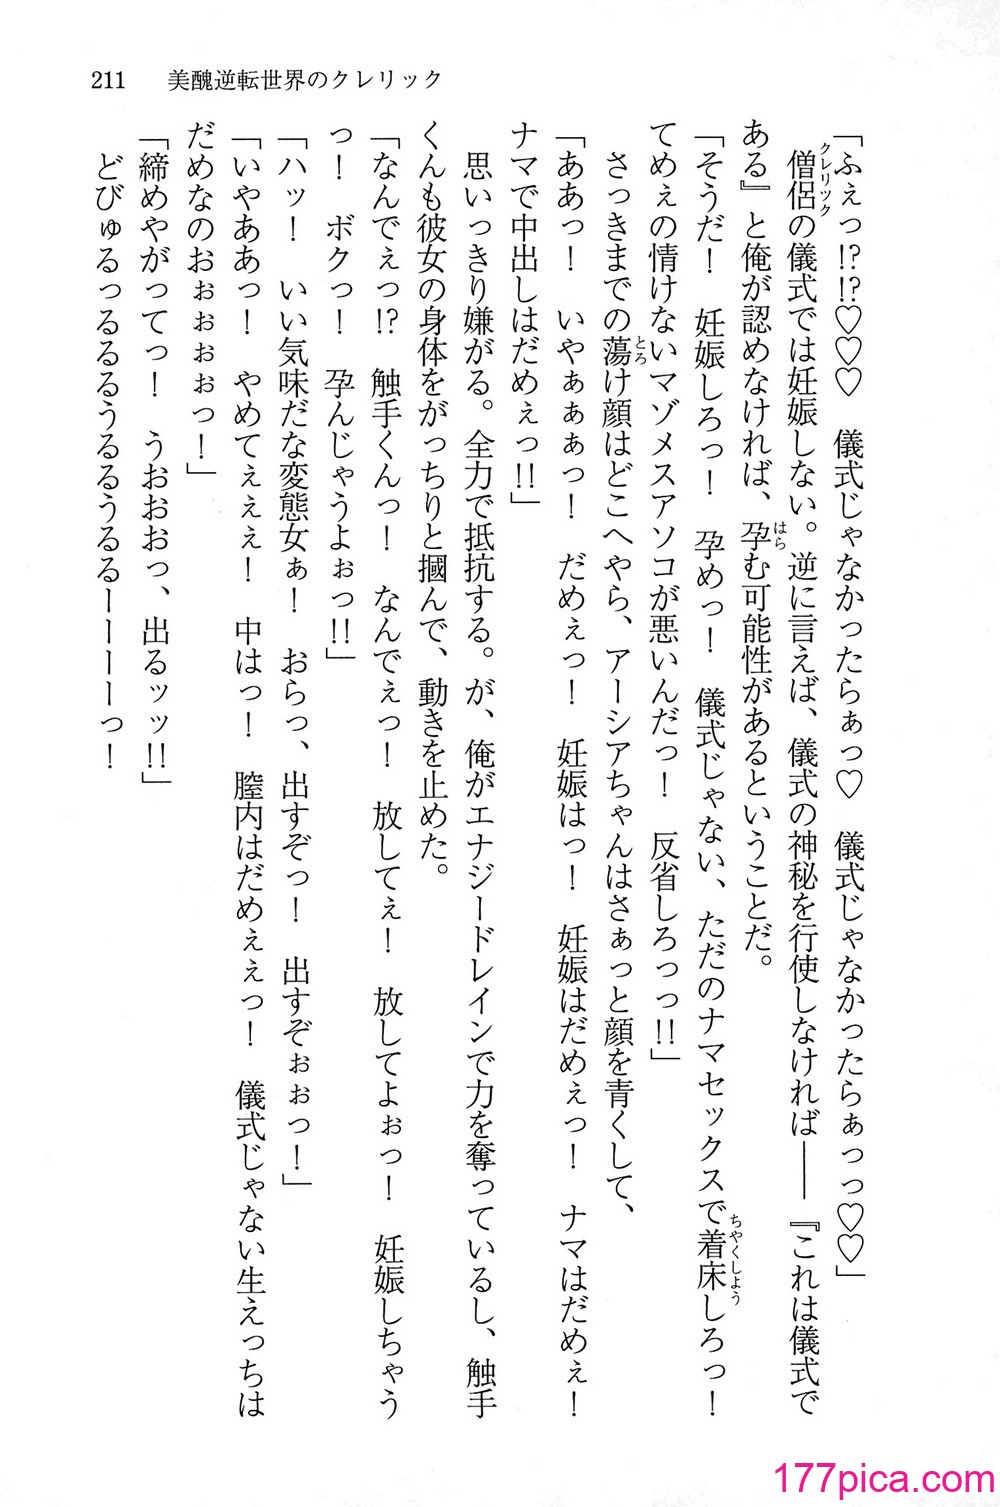 211 美醜逆転世界のクレリック
「ふぇっ!?!?♡♡♡　儀式じゃなかったらぁっ♡　儀式じゃなかったらぁっっ♡♡」
　僧侶の儀式では妊娠しない。逆に言えば、儀式の神秘を行使しなければ――『これは儀式で
クレリック
ある』と俺が認めなければ、孕む可能性があるということだ。
はら
「そうだ！　妊娠しろっ！　孕めっ！　儀式じゃない、ただのナマセックスで着床しろっ！
ちゃくしよう
てめぇの情けないマゾメスアソコが悪いんだっ！　反省しろっっ!!」
　さっきまでの蕩け顔はどこへやら、アーシアちゃんはさぁっと顔を青くして、
とろ
「ああっ！　いやぁぁぁっ！　だめぇっ！　妊娠はっ！　妊娠はだめぇっ！　ナマはだめぇ！
ナマで中出しはだめぇっ!!」
　思いっきり嫌がる。全力で抵抗する。が、俺がエナジードレインで力を奪っているし、触手
くんも彼女の身体をがっちりと摑んで、動きを止めた。
「なんでぇっ!?　触手くんっ！　なんでぇっ！　放してぇ！　放してよぉっ！　妊娠しちゃう
っ！　ボクっ！　孕んじゃうよぉっ!!」
「ハッ！　いい気味だな変態女ぁ！　おらっ、出すぞっ！　出すぞぉぉっ！」
「いやああっ！　やめてぇぇぇ！　中はっ！　膣内はだめぇぇっ！　儀式じゃない生えっちは
だめなのおぉぉぉぉっ！」
「締めやがってっ！　うおおおっ、出るッッ!!」
　どびゅるっるるるうるるうるるーーーーっ！
177pica.com